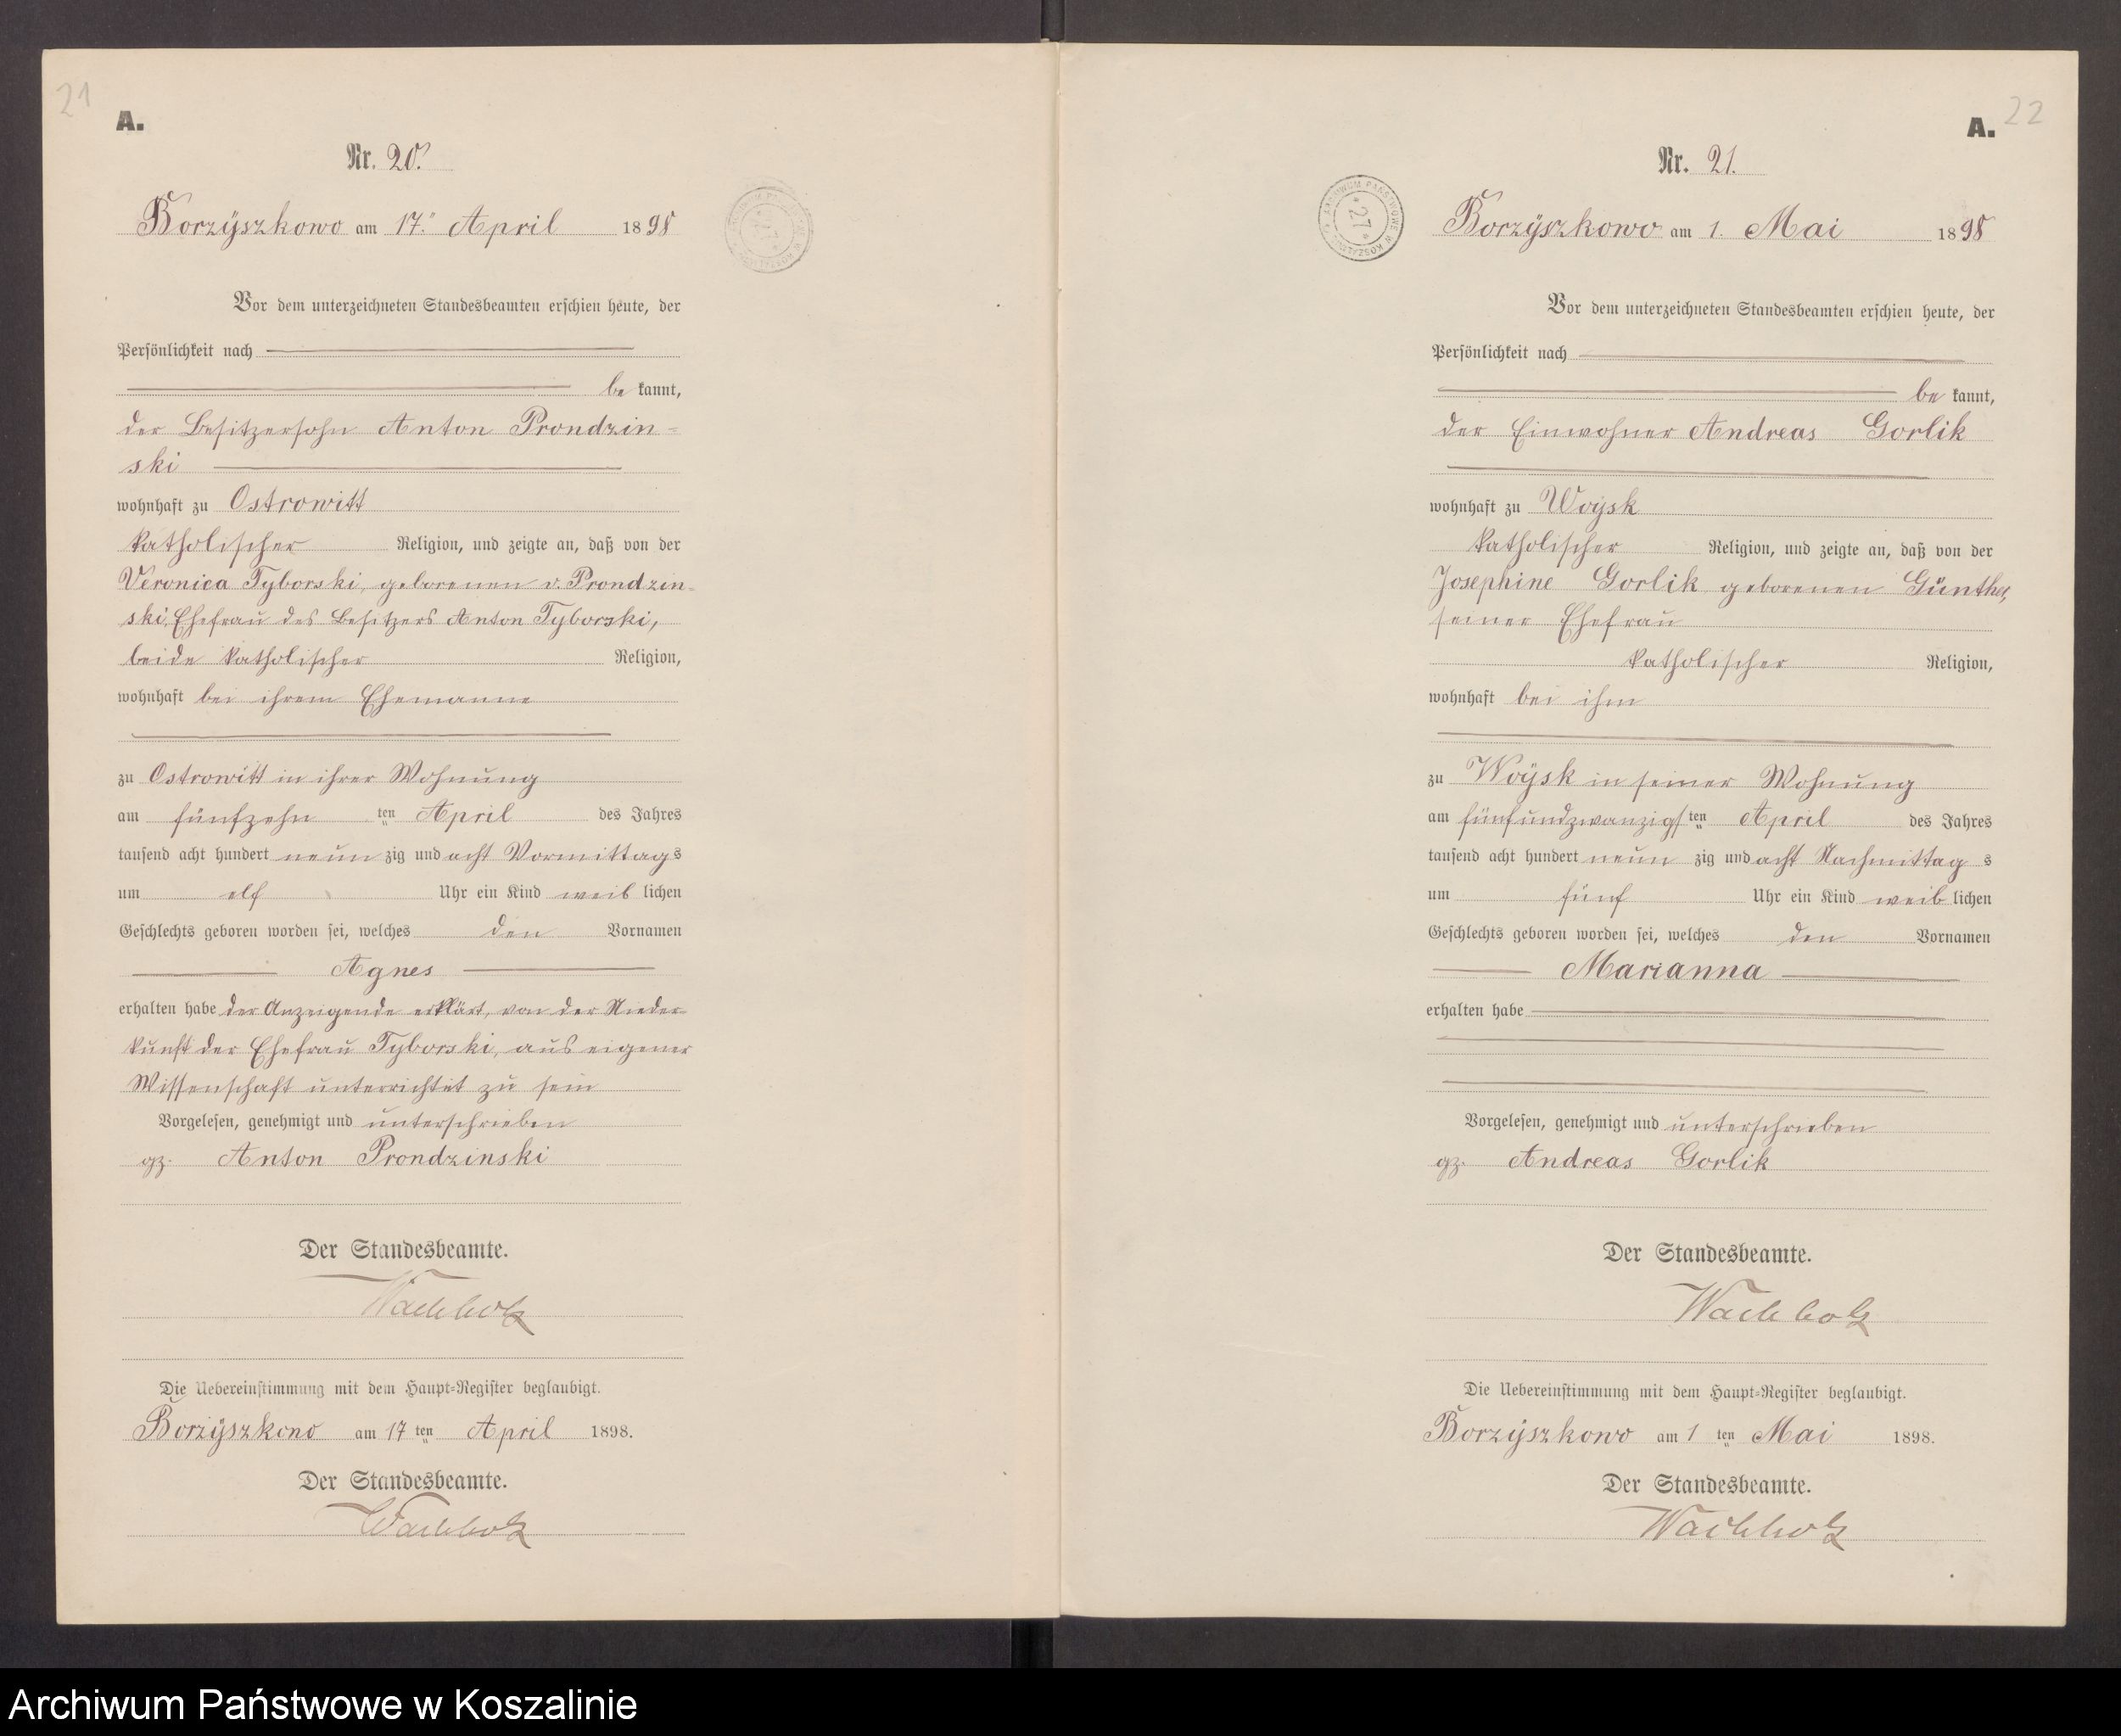 21
A.
Nr. 20.
Borzÿszkowo am 17. April 1898
Vor dem unterzeichneten Standesbeamten erschien heute, der
Persönlichkeit nach
be kannt,
der Besitzersohn Anton Prondzin-
ski
wohnhaft zu Ostrowitt
katholischer Religion, und zeigte an, daß von der
Veronica Tyborski, geborenen v. Prondzin-
ski, Ehefrau des Besitzers Anton Tyborski,
beide katholischer Religion,
wohnhaft bei ihrem Ehemanne
zu Ostrowitt in ihrer Wohnung
am fünfzehn ten April des Jahres
tausend acht hundert neun zig und acht Vormittags
um elf Uhr ein Kind weib lichen
Geschlechts geboren worden sei, welches den Vornamen
Agnes
erhalten habe der Anzeigende erklärt, von der Nieder-
kunft der Ehefrau Tyborski, aus eigener
Wissenschaft unterrichtet zu sein
Vorgelesen, genehmigt und unterschrieben
gz. Anton Prondzinski
Der Standesbeamte.
Wachholz
Die Uebereinstimmung mit dem Haupt-Register beglaubigt.
Borzÿszkowo am 17 ten April 1898.
Der Standesbeamte.
Wachholz
22
A.
Nr. 21.
ARCHIWUM PAŃSTWOWE W KOSZALINIE
* 27 *
Borzÿszkowo am 1. Mai 1898
Vor dem unterzeichneten Standesbeamten erschien heute, der
Persönlichkeit nach
be kannt,
der Einwohner Andreas Gorlik
wohnhaft zu Woÿsk
katholischer Religion, und zeigte an, daß von der
Josephine Gorlik geborenen Günther,
seiner Ehefrau
katholischer Religion,
wohnhaft bei ihm
zu Woÿsk in seiner Wohnung
am fünfundzwanzigs ten April des Jahres
tausend acht hundert neun zig und acht Nachmittag s
um fünf Uhr ein Kind weib lichen
Geschlechts geboren worden sei, welches den Vornamen
Marianna
erhalten habe
Vorgelesen, genehmigt und unterschrieben
gz. Andreas Gorlik
Der Standesbeamte.
Wachholz
Die Uebereinstimmung mit dem Haupt-Register beglaubigt.
Borzÿszkowo am 1 ten Mai 1898.
Der Standesbeamte.
Wachholz
Archiwum Państwowe w Koszalinie